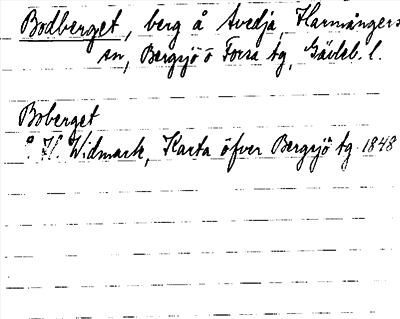 Bodberget, berg å Svedja, Harmångers
sn, Bergsjö o Forsa tg, Gävleb. l.
Boberget
Å H. Widmark, Karta öfver Bergsjö tg 1848